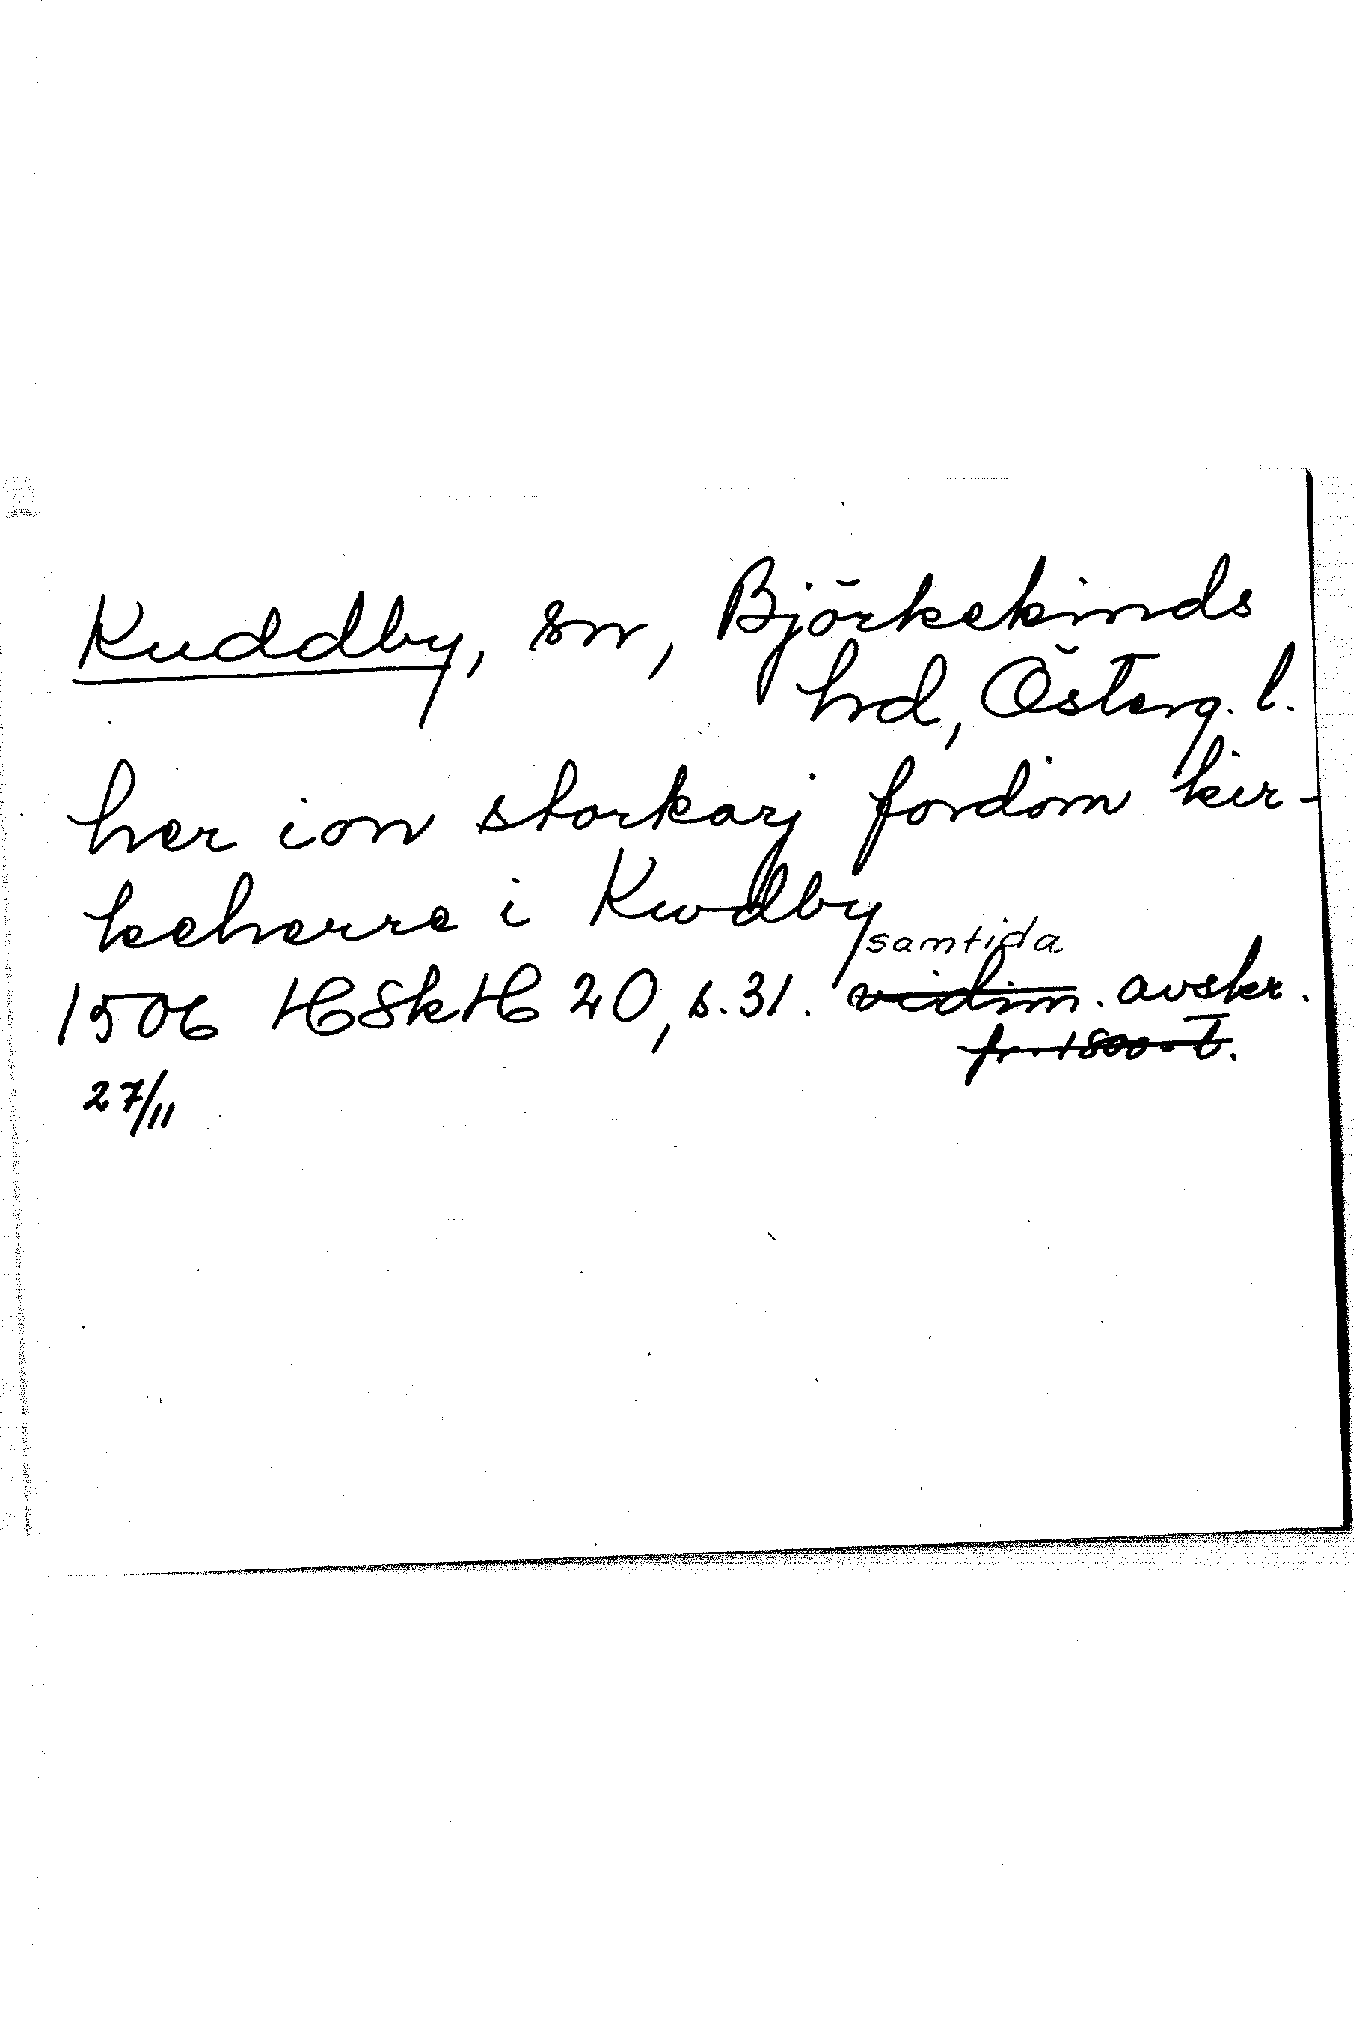 Kuddby, sn, Björkekinds
hd, Österg. l.
her ion storkarj fordom kir-
keherre i Kwdby
samtida
1506 HSkH 20, s. 31. vidim. avskr.
fr. 1800-t.
27/11